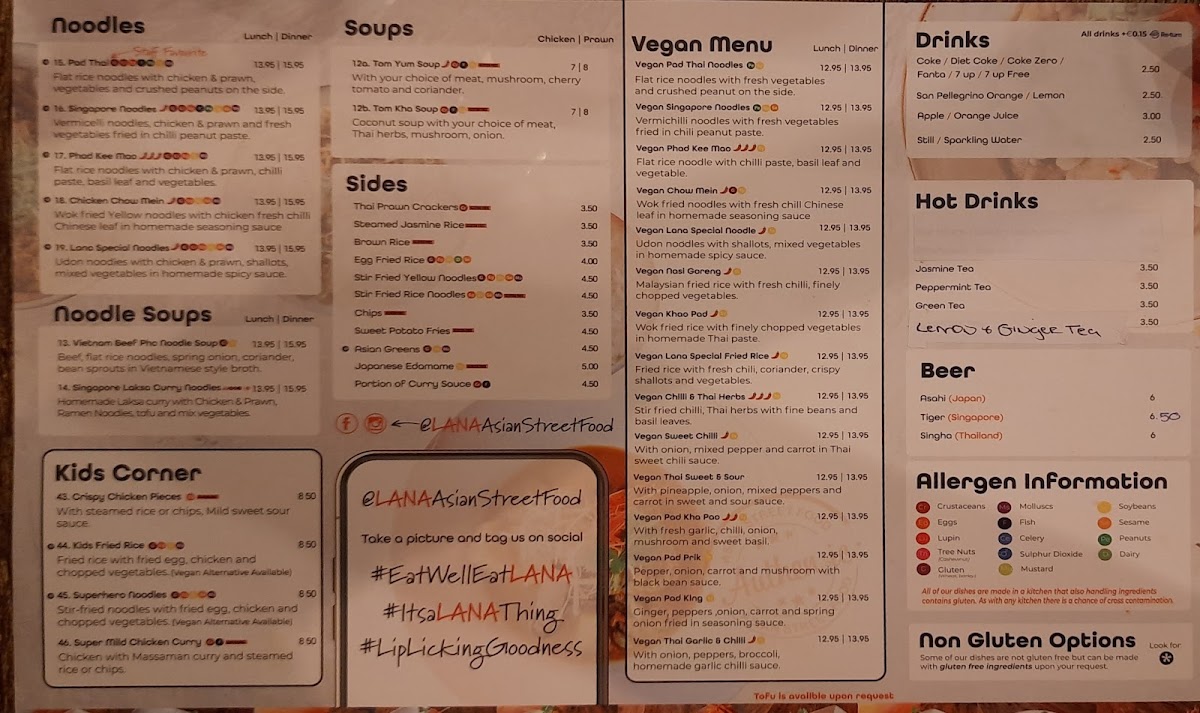 Noodles
Lunch | Dinner
Staff Favourite
15. Pad Thai 13.95 | 15.95
Flat rice noodles with chicken & prawn,
vegetables and crushed peanuts on the side.
16. Singapore Noodles 13.95 | 15.95
Vermicelli noodles, chicken & prawn and fresh
vegetables fried in chilli peanut paste.
17. Phad Kee Mao 13.95 | 15.95
Flat rice noodles with chicken & prawn, chilli
paste, basil leaf and vegetables.
18. Chicken Chow Mein 13.95 | 15.95
Wok fried Yellow noodles with chicken fresh chilli
Chinese leaf in homemade seasoning sauce
19. Lana Special Noodles 13.95 | 15.95
Udon noodles with chicken & prawn, shallots,
mixed vegetables in homemade spicy sauce.
Noodle Soups
Lunch | Dinner
13. Vietnam Beef Pho Noodle Soup 13.95 | 15.95
Beef, flat rice noodles, spring onion, coriander,
bean sprouts in Vietnamese style broth.
14. Singapore Laksa Curry Noodles 13.95 | 15.95
Homemade Laksa curry with Chicken & Prawn,
Ramen Noodles, tofu and mix vegetables.
Kids Corner
43. Crispy Chicken Pieces 8.50
With steamed rice or chips, Mild sweet sour
sauce.
44. Kids Fried Rice 8.50
Fried rice with fried egg, chicken and
chopped vegetables. (Vegan Alternative Available)
45. Superhero Noodles 8.50
Stir-fried noodles with fried egg, chicken and
chopped vegetables. (Vegan Alternative Available)
46. Super Mild Chicken Curry 8.50
Chicken with Massaman curry and steamed
rice or chips.
Soups
Chicken | Prawn
12a. Tom Yum Soup 7 | 8
With your choice of meat, mushroom, cherry
tomato and coriander.
12b. Tom Kha Soup 7 | 8
Coconut soup with your choice of meat,
Thai herbs, mushroom, onion.
Sides
Thai Prawn Crackers 3.50
Steamed Jasmine Rice 3.50
Brown Rice 3.50
Egg Fried Rice 4.00
Stir Fried Yellow Noodles 4.50
Stir Fried Rice Noodles 4.50
Chips 3.50
Sweet Potato Fries 4.50
Asian Greens 4.50
Japanese Edamame 5.00
Portion of Curry Sauce 4.50
@LANAAsianStreetFood
@LANAAsianStreetFood
Take a picture and tag us on social
#EatWellEatLANA
#ItsaLANAThing
#LipLickingGoodness
Vegan Menu
Lunch | Dinner
Vegan Pad Thai Noodles 12.95 | 13.95
Flat rice noodles with fresh vegetables
and crushed peanut on the side.
Vegan Singapore Noodles 12.95 | 13.95
Vermichilli noodles with fresh vegetables
fried in chili peanut paste.
Vegan Phad Kee Mao 12.95 | 13.95
Flat rice noodle with chilli paste, basil leaf and
vegetable.
Vegan Chow Mein 12.95 | 13.95
Wok fried noodles with fresh chill Chinese
leaf in homemade seasoning sauce
Vegan Lana Special Noodle 12.95 | 13.95
Udon noodles with shallots, mixed vegetables
in homemade spicy sauce.
Vegan Nasi Goreng 12.95 | 13.95
Malaysian fried rice with fresh chilli, finely
chopped vegetables.
Vegan Khao Pad 12.95 | 13.95
Wok fried rice with finely chopped vegetables
in homemade Thai paste.
Vegan Lana Special Fried Rice 12.95 | 13.95
Fried rice with fresh chili, coriander, crispy
shallots and vegetables.
Vegan Chilli & Thai Herbs 12.95 | 13.95
Stir fried chilli, Thai herbs with fine beans and
basil leaves.
Vegan Sweet Chilli 12.95 | 13.95
With onion, mixed pepper and carrot in Thai
sweet chili sauce.
Vegan Thai Sweet & Sour 12.95 | 13.95
With pineapple, onion, mixed peppers and
carrot in sweet and sour sauce.
Vegan Pad Kha Pao 12.95 | 13.95
With fresh garlic, chilli, onion,
mushroom and sweet basil.
Vegan Pad Prik 12.95 | 13.95
Pepper, onion, carrot and mushroom with
black bean sauce.
Vegan Pad King 12.95 | 13.95
Ginger, peppers ,onion, carrot and spring
onion fried in seasoning sauce.
Vegan Thai Garlic & Chilli 12.95 | 13.95
With onion, peppers, broccoli,
homemade garlic chilli sauce.
ToFu is avalible upon request
Drinks
All drinks +€0.15 Re-turn
Coke / Diet Coke / Coke Zero /
Fanta / 7 up / 7 up Free 2.50
San Pellegrino Orange / Lemon 2.50
Apple / Orange Juice 3.00
Still / Sparkling Water 2.50
Hot Drinks
Jasmine Tea 3.50
Peppermint Tea 3.50
Green Tea 3.50
Lemon & Ginger Tea 3.50
Beer
Asahi (Japan) 6
Tiger (Singapore) 6.50
Singha (Thailand) 6
Allergen Information
Crustaceans Molluscs Soybeans
Eggs Fish Sesame
Lupin Celery Peanuts
Tree Nuts Sulphur Dioxide Dairy
Gluten Mustard
All of our dishes are made in a kitchen that also handling ingredients
contains gluten. As with any kitchen there is a chance of cross contamination.
Non Gluten Options
Look for
Some of our dishes are not gluten free but can be made
with gluten free ingredients upon your request.